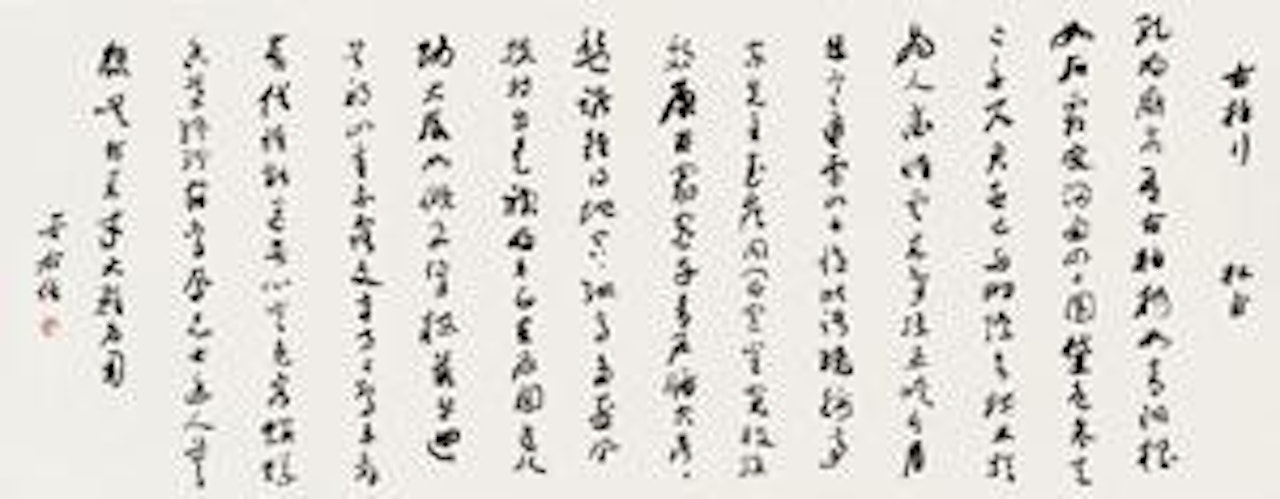 古柏行 杜甫
孔明廟前有老柏柯如青銅根
如石霜皮溜雨四十圍黛色參天
二千尺君臣已與時際會樹木猶
為人愛惜雲來氣接巫峽長月
出寒通雪山白憶昨路繞錦亭
東先主武侯同閟宮崔嵬枝幹
郊原古窈窕丹青戶牖空落
落盤踞雖得地冥冥孤高多烈風
扶持自是神明力正直元因造化
功大廈如傾要梁棟萬牛回
首丘山重不露文章世已驚未辭
翦伐誰能送苦心豈免容螻蟻
香葉終經宿鸞鳳志士幽人莫
怨嗟古來材大難為用
于右任